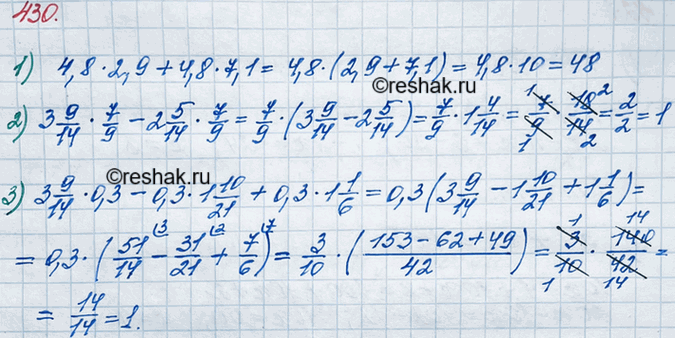 430.
1) 4,8 · 2,9 + 4,8 · 7,1 = 4,8 · (2,9 + 7,1) = 4,8 · 10 = 48
©reshak.ru
2) 3 9/14 · 7/9 − 2 5/14 · 7/9 = 7/9 · (3 9/14 − 2 5/14) = 7/9 · 1 4/14 = 7/9 · 18/14 = 2/2 = 1
©reshak.ru
3) 3 9/14 · 0,3 − 0,3 · 1 10/21 + 0,3 · 1 1/6 = 0,3 (3 9/14 − 1 10/21 + 1 1/6) =
= 0,3 · (51/14 (3 − 31/21 (2 + 7/6 (7) = 3/10 · ((153 − 62 + 49)/42) = 3/10 · 140/42 =
©reshak.ru
= 14/14 = 1.